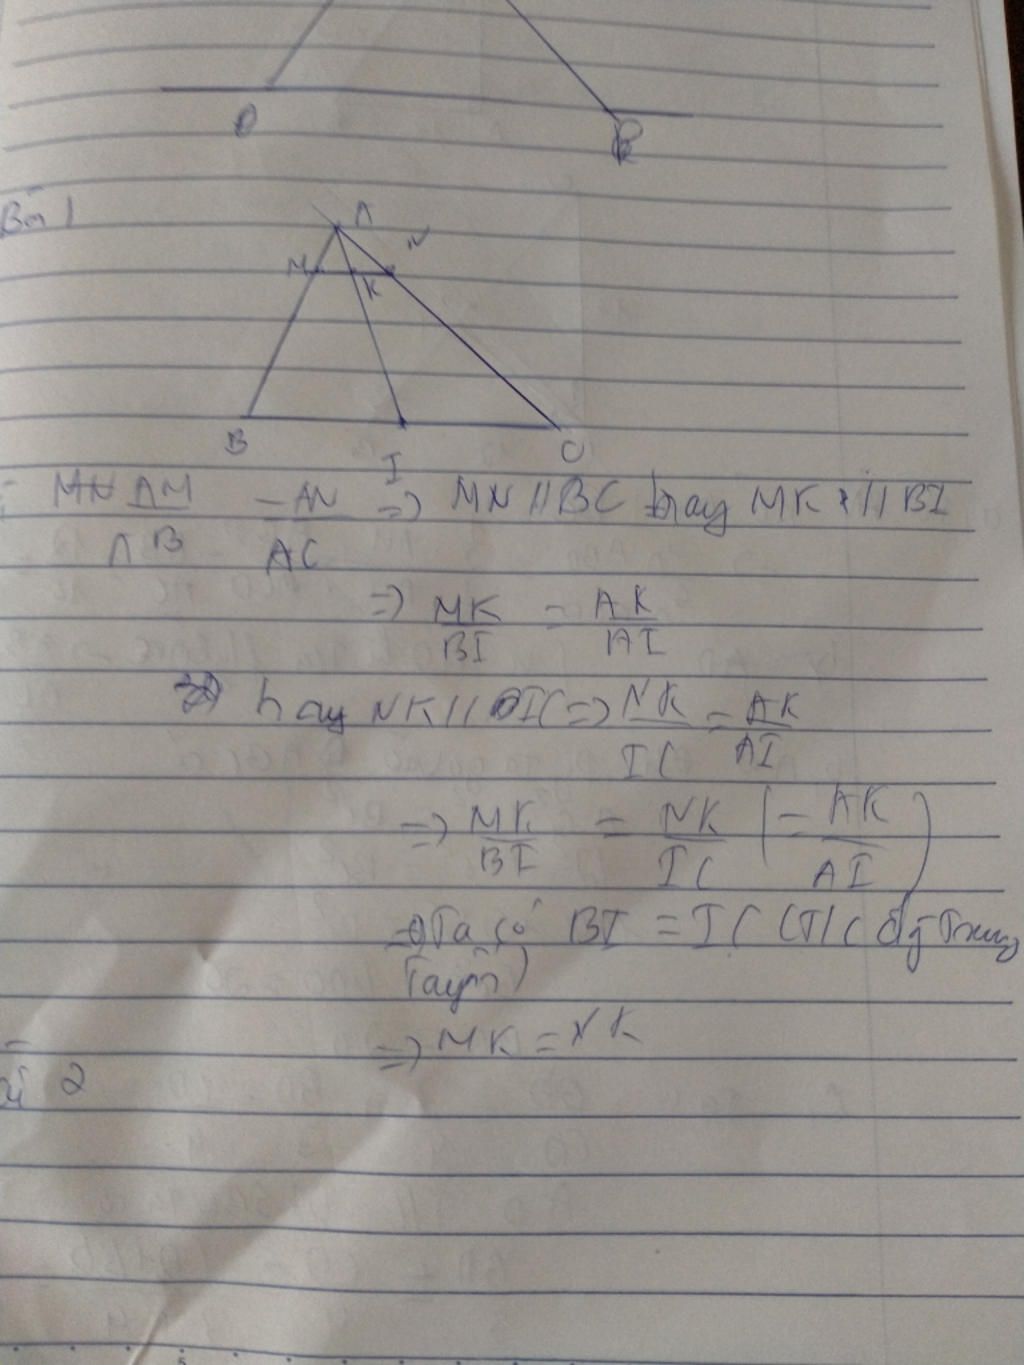 Bài 1
A
N
M
K
B
I
C
AM/AB = AN/AC => MN // BC hay MK // BI
=> MK/BI = AK/AI
hay NK // IC => NK/IC = AK/AI
=> MK/BI = NK/IC (= AK/AI)
=> Ta có BI = IC (T/c đg Trung
Tuyến)
=> MK = NK
2